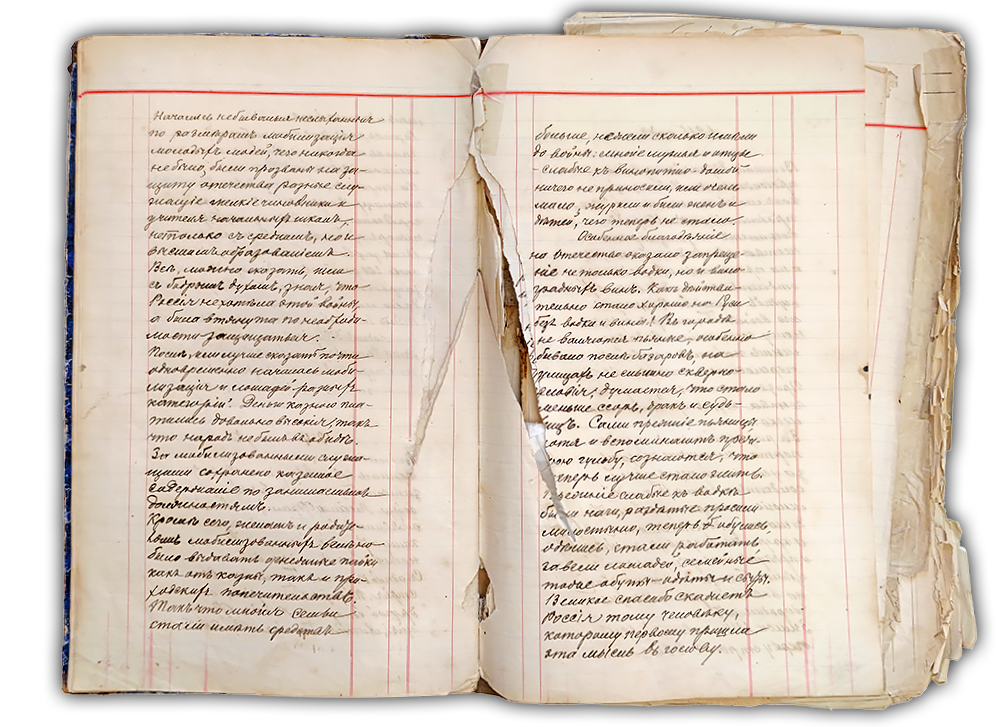 Началась небывалая неслыханная
по размѣрамъ мобилизація
молодыхъ людей, чего никогда
не было, были призваны на за-
щиту отечества разные слу-
жащіе
учителя начальныхъ школъ,
не только съ среднимъ, но и
высшимъ образованіемъ.
Всѣ, можно сказать, шли
съ бодрымъ духомъ, зная, что
Россія не хотѣла этой войны,
а была втянута по необходи-
мости защищаться.
Послѣ, или лучше сказать почти
одновременно началась моби-
лизація и лошадей разныхъ
категорій. Деньги казною пла-
тились довольно высокія, такъ
что народъ не былъ въ обидѣ.
За мобилизованными служа-
щими сохранено казенное
содержаніе по занимаемымъ
должностямъ.
Кромѣ сего, женамъ и родите-
лямъ мобилизованныхъ велѣно
было выдавать денежные пайки
какъ отъ казны, такъ и при-
ходскихъ попечительствъ.
Такъ что многія семьи
стали имѣть средства
больше, нежели сколько имѣли
до войны: иные мужья и отцы
слабые къ винопитію - домой
ничего не приносили, или очень
мало, журили и били женъ и
дѣтей, чего теперь не стало.
Особенное благодѣяніе
на отечество оказало запреще-
ніе не только водки, но и вино-
градныхъ винъ. Какъ дѣйстви-
тельно стало хорошо на Руси
безъ водки и вина! Въ городѣ
не валяются пьяные, особенно
бывало послѣ базаровъ, на
улицахъ не слышно скверно-
словія, думается, что стало
меньше ссоръ, дракъ и судь-
бищъ. Сами прежніе пьяницы
хотя и вспоминаютъ преж-
нюю гульбу, сознаются, что
теперь лучше стало жить.
Прежніе слабые къ водкѣ
были наги, раздѣты просили
милостыню, теперь обулись
одѣлись, стали работать
завели лошадей, семейные
тоже обуты - одѣты и сыты.
Великое спасибо скажетъ
Россія тому человѣку,
которому первому пришла
эта мысль въ голову.